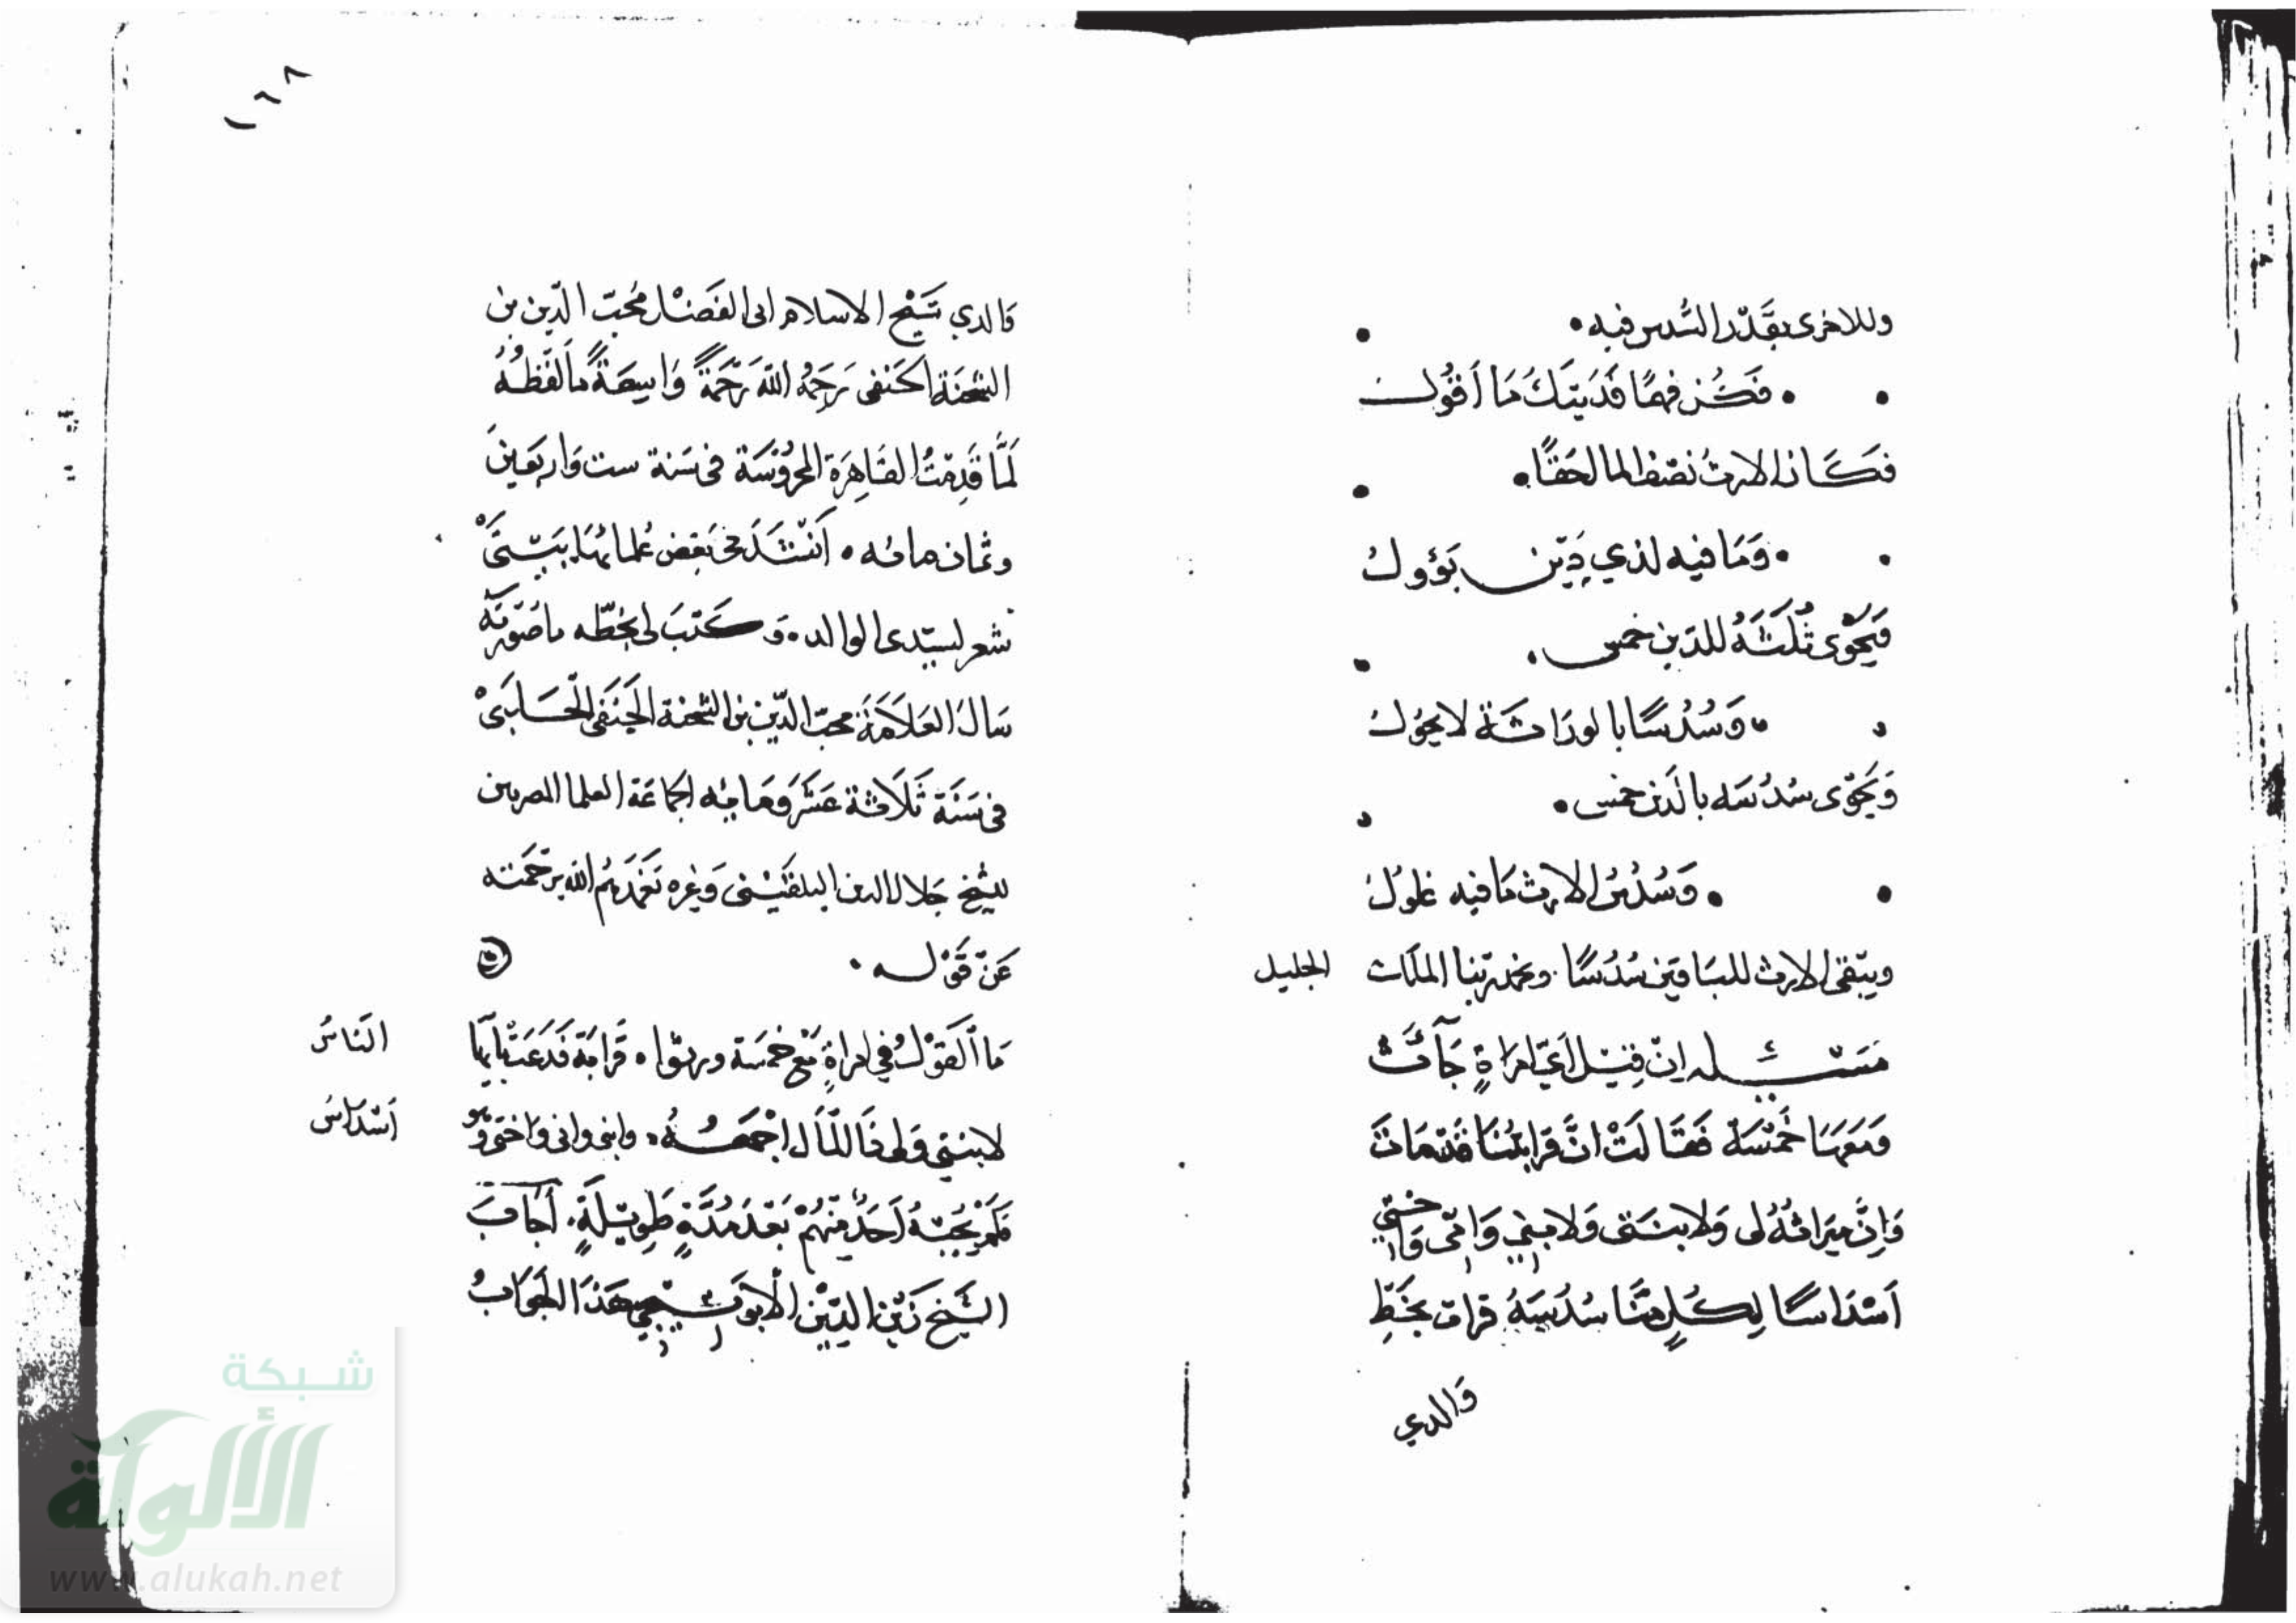 وللاخرى بقدر السدس فيه
فكن فهما فديتك ما أقول
فكان الارث نصف المال حقا
وما فيه لذي دين يؤول
فيحوى ثلثه للدين خمس
وسدسا بالوراثة لا يحول
ويحوى سدسه بالدين خمس
وسدس الارث ما فيه غلول
ويبقى الارث للباقين سدسا ونحمد ربنا الملك الجليل
مسئلة ان قيل اي امراة جآئت
ومعها خمسة فقالت ان قرابتنا قد مات
وان ميراثه لى ولابنتى ولابني وامى واختي
اسداسا لكل منا سدسه قرات بخط
والدي
١٦٨
والدي شيخ الاسلام ابى الفضل محب الدين بن
الشحنة الحنفى رحمه الله رحمة واسعة ما لفظه
لما قدمت القاهرة المحروسة فى سنة ست واربعين
وثمان مائه انشدنى بعض علمائها بيتى
شعر لسيدى الوالد وكتب لى بخطه ما صورته
سال العلامة محب الدين بن الشحنة الحنفى الحلبى
فى سنة ثلاثة عشر وثمانمايه لجماعة العلما المصريين
للشيخ جلال الدين البلقينى وغيره تغمدهم الله برحمته
عن قوله
ما القول في امراة مع خمسة ورثوا قرابة فدعت يا ايها الناس
لابنتي ولى ذا المال اجمعه وابنى وامى واختى وهو اسداس
فلم يجبه احد منهم بعد مدة طويلة اجاب
الشيخ زين الدين الابوتيجي هذا الجواب
شبكة
الألوكة
www.alukah.net